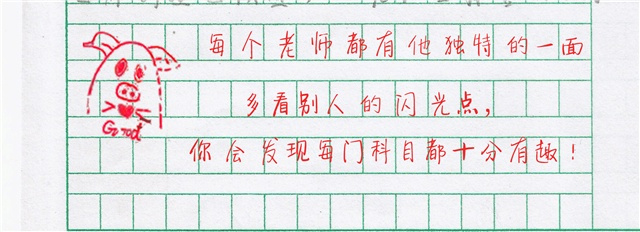 每个老师都有他独特的一面
多看别人的闪光点，
你会发现每门科目都十分有趣！
Good